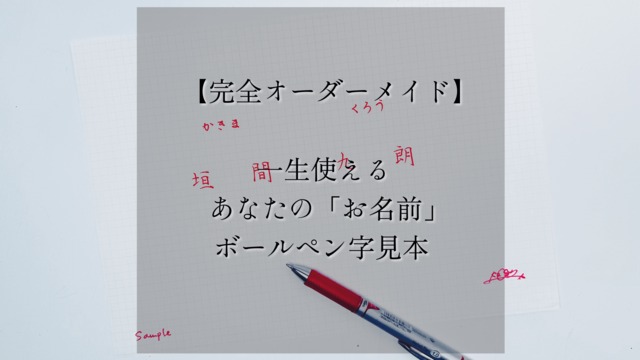 【完全オーダーメイド】
かきま くろう
垣間九朗
一生使える
あなたの「お名前」
ボールペン字見本
Sample